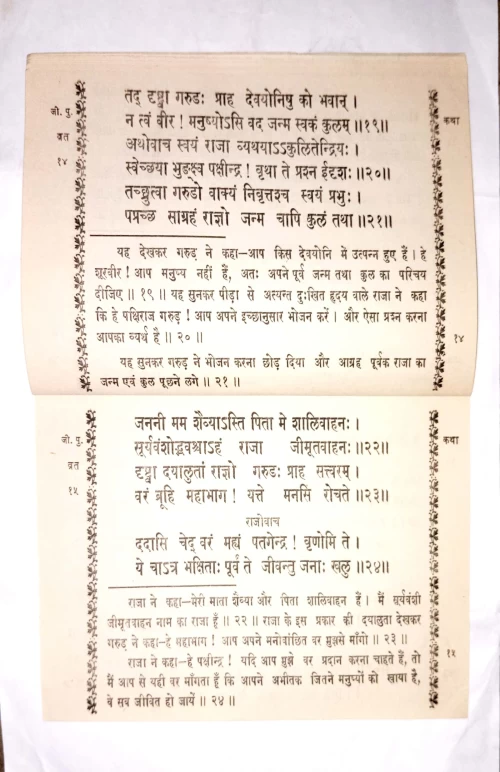 तद् दृष्ट्वा गरुडः प्राह देवयोनिषु को भवान् ।
न त्वं वीर ! मनुष्योऽसि वद जन्म स्वकं कुलम् ॥१९॥
अथोवाच स्वयं राजा व्यथयाऽऽकुलितेन्द्रियः ।
स्वेच्छया भुङ्क्ष्व पक्षीन्द्र ! वृथा ते प्रश्न ईदृशः ॥२०॥
तच्छ्रुत्वा गरुडो वाक्यं निवृत्तश्च स्वयं प्रभुः ।
पप्रच्छ साग्रहं राज्ञो जन्म चापि कुलं तथा ॥२१॥
जी. पु.
व्रत
१४
कथा
यह देखकर गरुड़ ने कहा–आप किस देवयोनि मे उत्पन्न हुए हैं । हे
शूरवीर ! आप मनुष्य नहीं हैं, अतः अपने पूर्व जन्म तथा कुल का परिचय
दीजिए ॥ १९ ॥ यह सुनकर पीड़ा से अत्यन्त दुःखित हृदय वाले राजा ने कहा
कि हे पक्षिराज गरुड़ ! आप अपने इच्छानुसार भोजन करें । और ऐसा प्रश्न करना
आपका व्यर्थ है ॥ २० ॥
१४
यह सुनकर गरुड़ ने भोजन करना छोड़ दिया और आग्रह पूर्वक राजा का
जन्म एवं कुल पूछने लगे ॥ २१ ॥
जननी मम शैव्याऽस्ति पिता मे शालिवाहनः ।
सूर्यवंशोद्भवश्चाऽहं राजा जीमूतवाहनः ॥२२॥
दृष्ट्वा दयालुतां राज्ञो गरुडः प्राह सत्त्वरम् ।
वरं ब्रूहि महाभाग ! यत्ते मनसि रोचते ॥२३॥
राजोवाच
ददासि चेद् वरं मह्यं पतगेन्द्र ! वृणोमि ते ।
ये चाऽत्र भक्षिताः पूर्वं ते जीवन्तु जनाः खलु ॥२४॥
जी. पु.
व्रत
१५
कथा
राजा ने कहा–मेरी माता शैव्या और पिता शालिवाहन हैं । मैं सूर्यवंशी
जीमूतवाहन नाम का राजा हूँ ॥ २२ ॥ राजा के इस प्रकार की दयालुता देखकर
गरुड़ ने कहा–हे महाभाग ! आप अपने मनोवांछित वर मुझसे माँगो ॥ २३ ॥
राजा ने कहा–हे पक्षीन्द्र ! यदि आप मुझे वर प्रदान करना चाहते हैं, तो
मैं आप से यही वर माँगता हूँ कि आपने अभीतक जितने मनुष्यों को खाया है,
वे सब जीवित हो जायें ॥ २४ ॥
१५